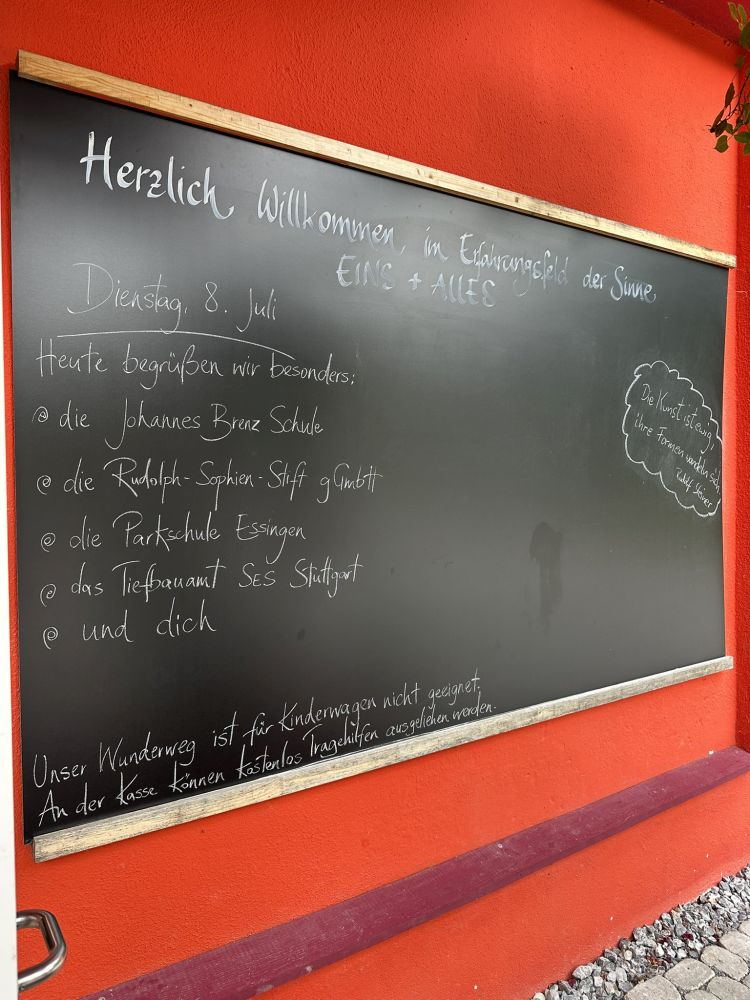 Herzlich Willkommen, im Erfahrungsfeld der Sinne
EINS + ALLES
Dienstag, 8. Juli
Heute begrüßen wir besonders:
@ die Johannes Brenz Schule
@ die Rudolph-Sophien-Stift gGmbH
@ die Parkschule Essingen
@ das Tiefbauamt SES Stuttgart
@ und dich
Die Kunst ist ewig,
ihre Formen wandeln sich.
Rudolf Steiner
Unser Wunderweg ist für Kinderwagen nicht geeignet.
An der Kasse können kostenlos Tragehilfen ausgeliehen werden.